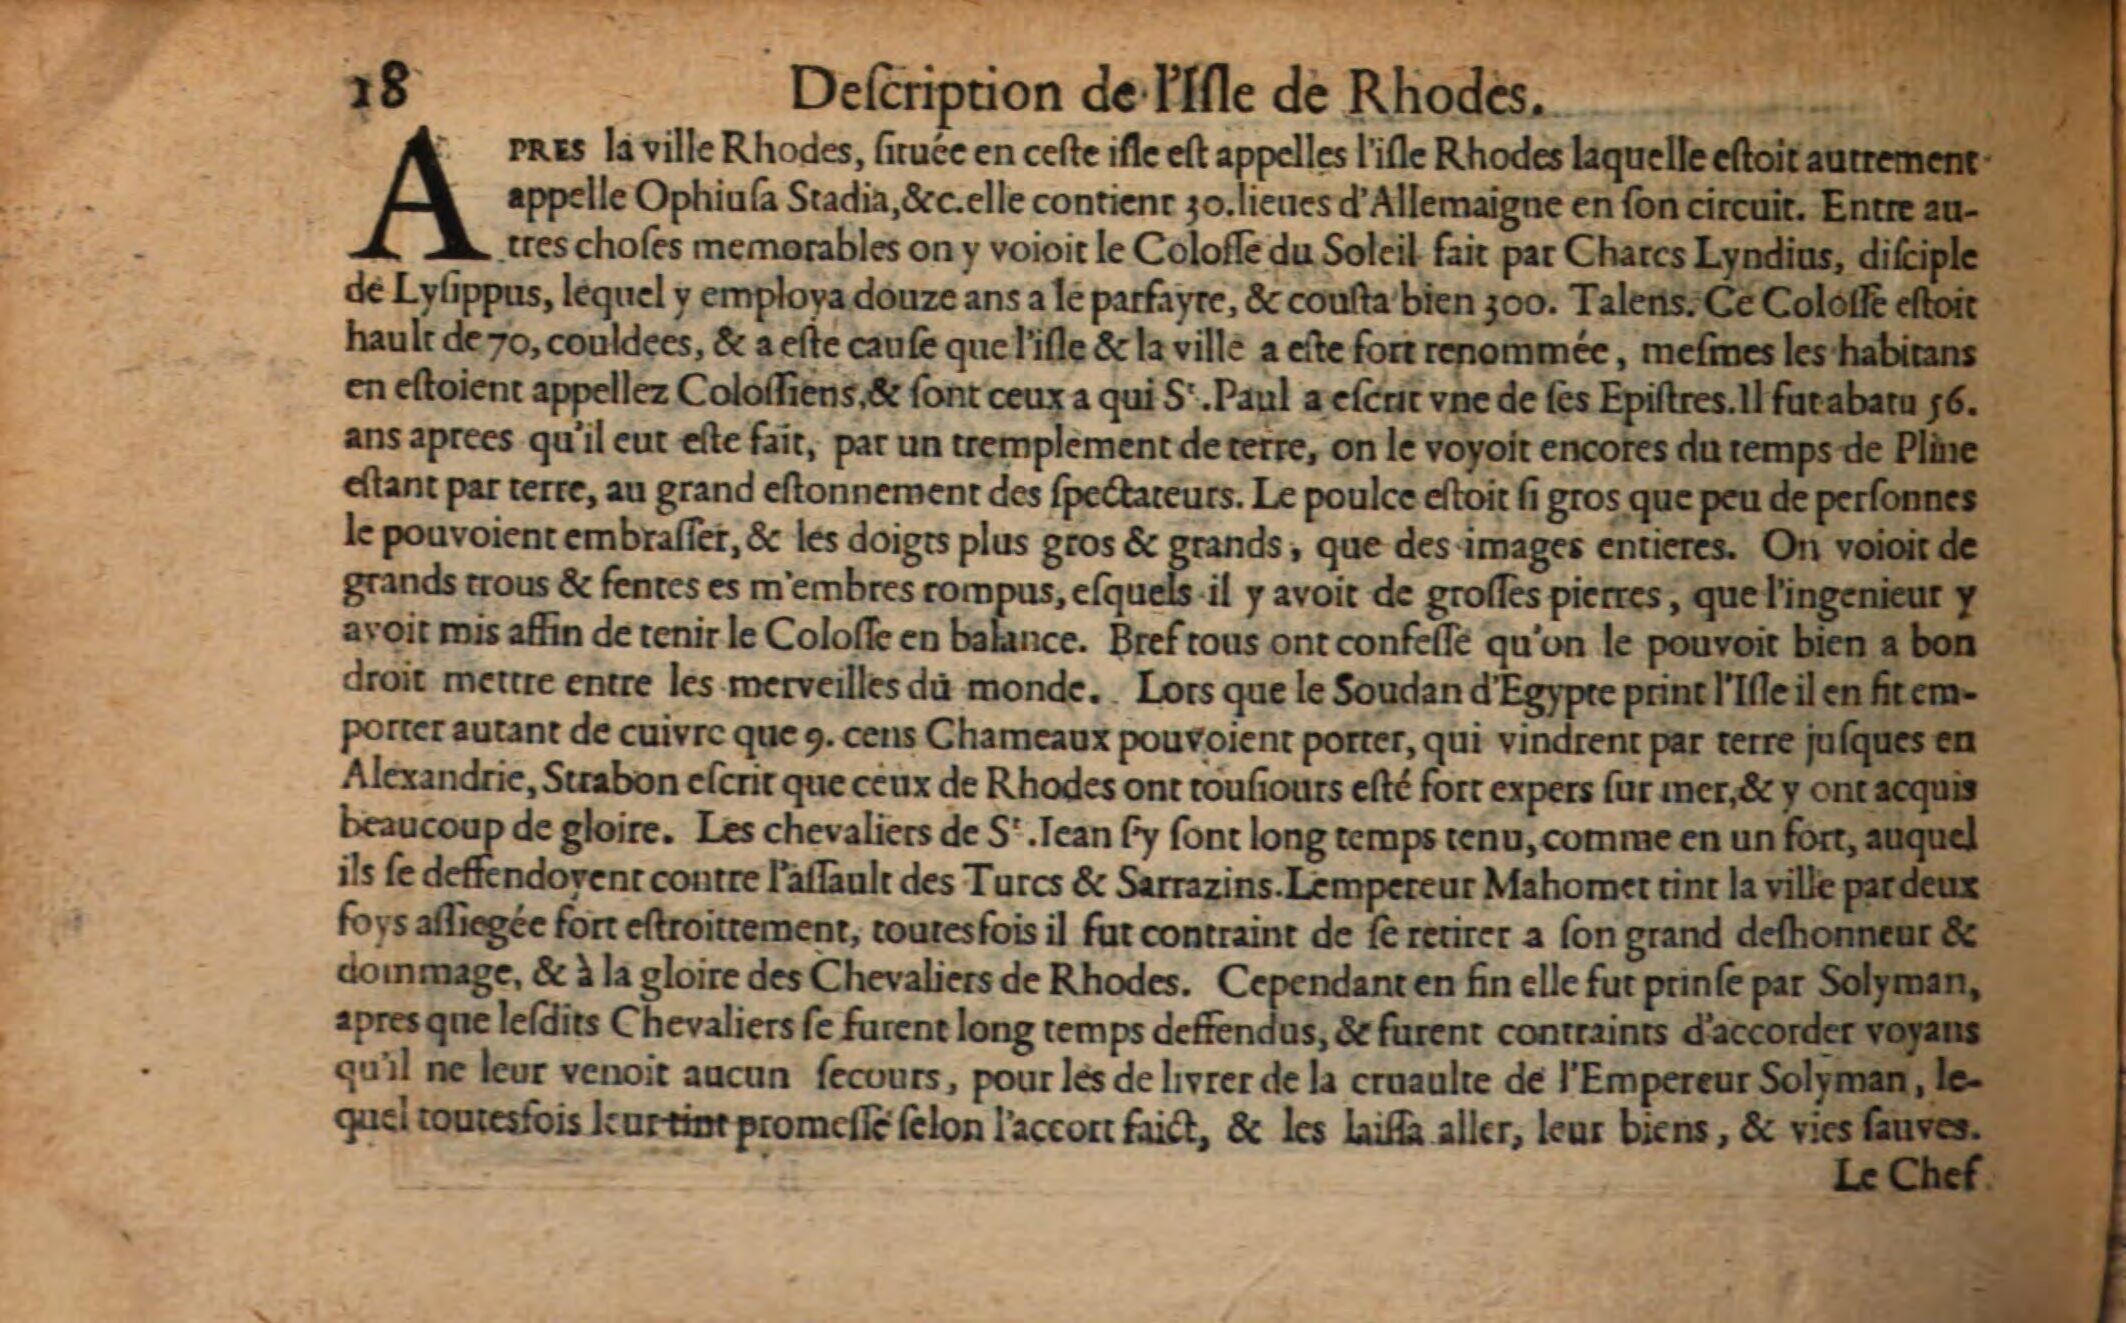 18 Deſcription de l'Iſle de Rhodes.
APRES la ville Rhodes, ſituée en ceſte iſle eſt appelles l'iſle Rhodes laquelle eſtoit autrement
appelle Ophiuſa Stadia,&c.elle contient 30.lieues d'Allemaigne en ſon circuit. Entre au-
tres choſes memorables on y voioit le Coloſſe du Soleil fait par Chares Lyndius, diſciple
de Lyſippus, lequel y employa douze ans a le parfayre, & couſta bien 300. Talens. Ce Coloſſe eſtoit
hault de 70, couldees, & a eſte cauſe que l'iſle & la ville a eſte fort renommée, meſmes les habitans
en eſtoient appellez Coloſſiens,& ſont ceux a qui Sᵗ.Paul a eſcrit vne de ſes Epiſtres.Il fut abatu 56.
ans aprees qu'il eut eſte fait, par un tremplement de terre, on le voyoit encores du temps de Pline
eſtant par terre, au grand eſtonnement des ſpectateurs. Le poulce eſtoit ſi gros que peu de perſonnes
le pouvoient embraſſer, & les doigts plus gros & grands, que des images entieres. On voioit de
grands trous & fentes es m'embres rompus, eſquels il y avoit de groſſes pierres, que l'ingenieur y
avoit mis affin de tenir le Coloſſe en balance. Bref tous ont confeſſé qu'on le pouvoit bien a bon
droit mettre entre les merveilles du monde. Lors que le Soudan d'Egypte print l'Iſle il en fit em-
porter autant de cuivre que 9. cens Chameaux pouvoient porter, qui vindrent par terre juſques en
Alexandrie, Strabon eſcrit que ceux de Rhodes ont touſiours eſté fort expers ſur mer,& y ont acquis
beaucoup de gloire. Les chevaliers de Sᵗ.Iean ſ'y ſont long temps tenu, comme en un fort, auquel
ils ſe deffendoyent contre l'aſſault des Turcs & Sarrazins.Lempereur Mahomet tint la ville par deux
foys aſſiegée fort eſtroittement, toutesfois il fut contraint de ſe retirer a ſon grand deſhonneur &
dommage, & à la gloire des Chevaliers de Rhodes. Cependant en fin elle fut prinſe par Solyman,
apres que leſdits Chevaliers ſe furent long temps deffendus, & furent contraints d'accorder voyans
qu'il ne leur venoit aucun ſecours, pour les de livrer de la cruaulte de l'Empereur Solyman, le-
quel toutesfois leur tint promeſſe ſelon l'accort faict, & les laiſſa aller, leur biens, & vies ſauves.
Le Chef